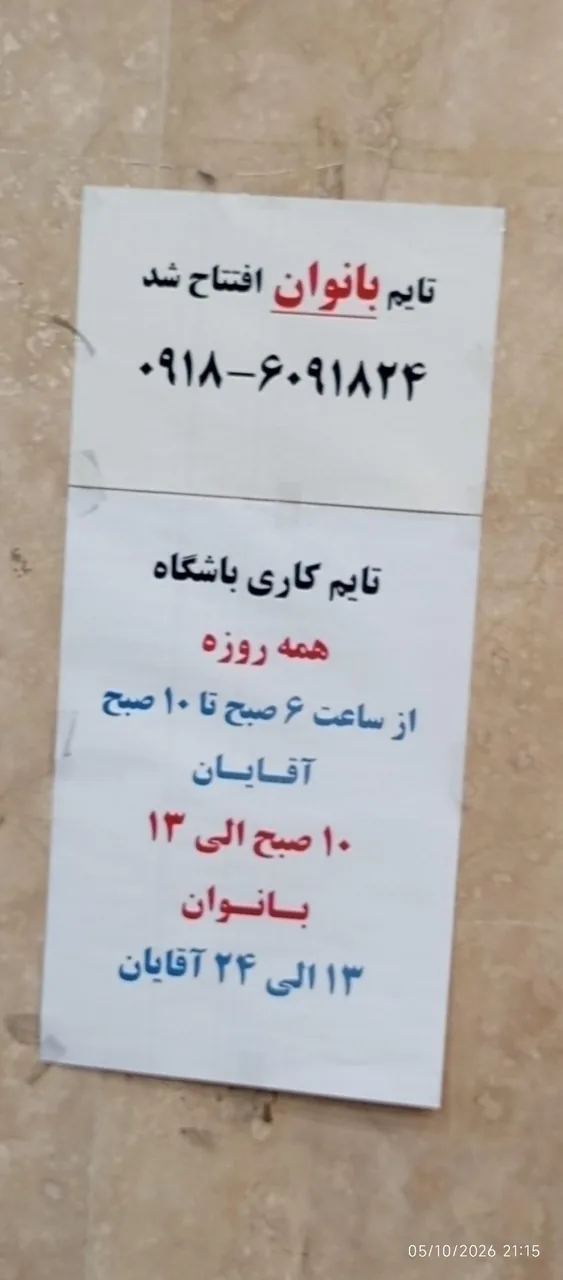 تایم بانوان افتتاح شد
۰۹۱۸-۶۰۹۱۸۲۴
تایم کاری باشگاه
همه روزه
از ساعت ۶ صبح تا ۱۰ صبح
آقـایـان
۱۰ صبح الی ۱۳
بـانـوان
۱۳ الی ۲۴ آقایان
05/10/2026 21:15